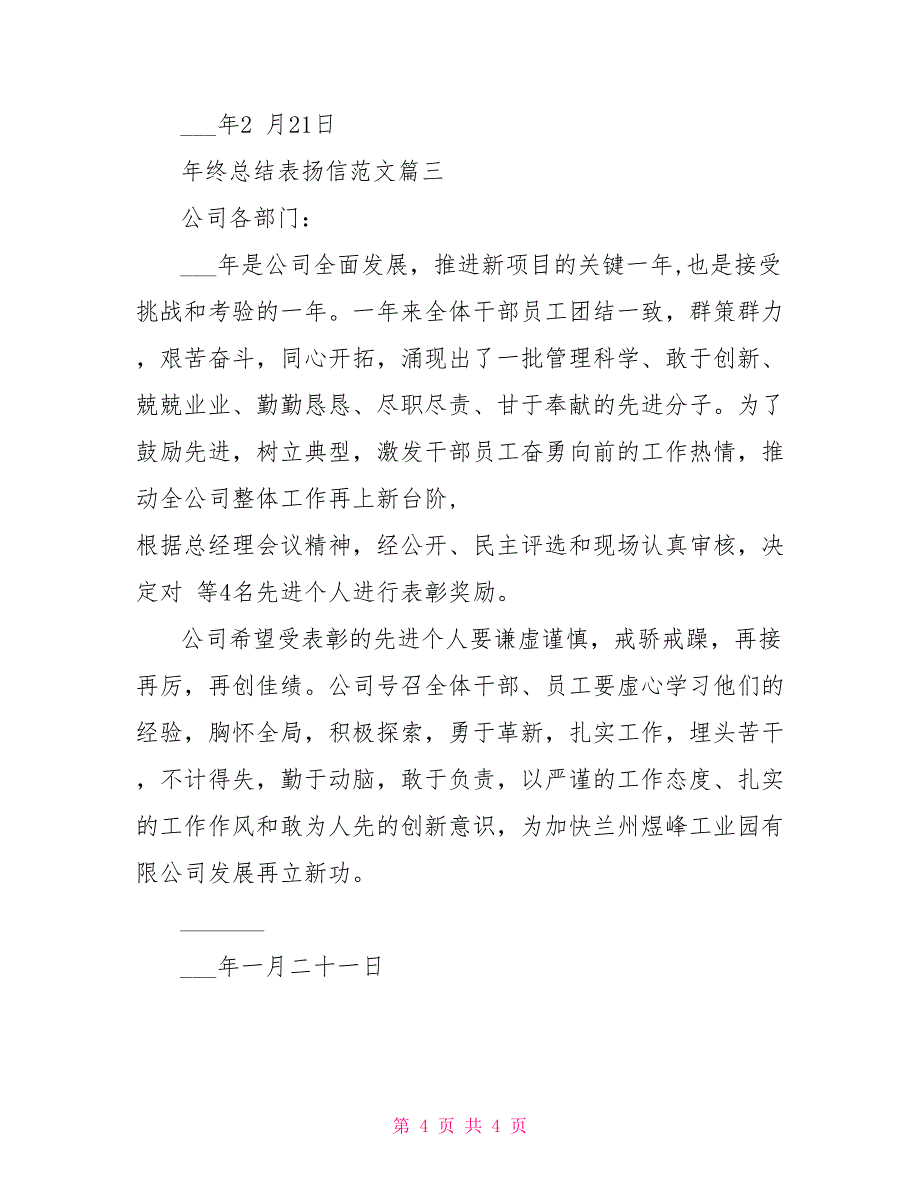 ___年2 月21日
年终总结表扬信范文篇三
公司各部门：
___年是公司全面发展，推进新项目的关键一年,也是接受
挑战和考验的一年。一年来全体干部员工团结一致，群策群力
，艰苦奋斗，同心开拓，涌现出了一批管理科学、敢于创新、
兢兢业业、勤勤恳恳、尽职尽责、甘于奉献的先进分子。为了
鼓励先进，树立典型，激发干部员工奋勇向前的工作热情，推
动全公司整体工作再上新台阶,
根据总经理会议精神，经公开、民主评选和现场认真审核，决
定对 等4名先进个人进行表彰奖励。
公司希望受表彰的先进个人要谦虚谨慎，戒骄戒躁，再接
再厉，再创佳绩。公司号召全体干部、员工要虚心学习他们的
经验，胸怀全局，积极探索，勇于革新，扎实工作，埋头苦干
，不计得失，勤于动脑，敢于负责，以严谨的工作态度、扎实
的工作作风和敢为人先的创新意识，为加快兰州煜峰工业园有
限公司发展再立新功。
_______
___年一月二十一日
第 4 页 共 4 页